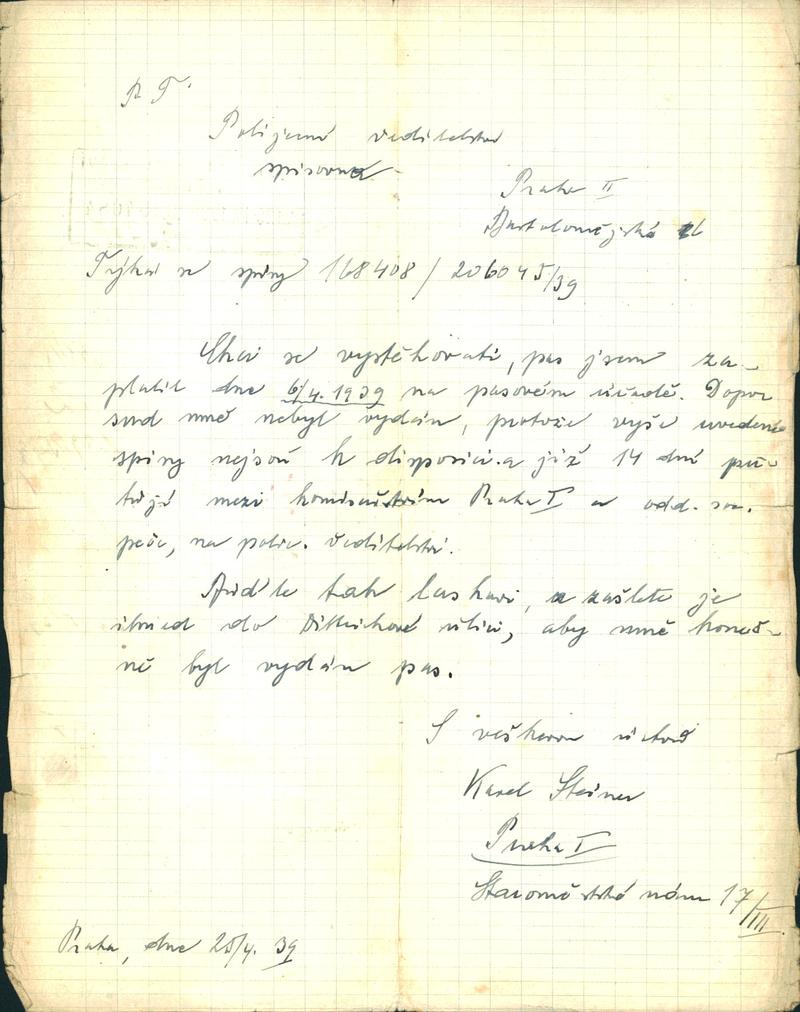 P. T.
Policejní ředitelství
spisovna
Praha II
Bartolomějská
Týká se spisy 168408 / 206045/39
Chci se vystěhovati, pas jsem za-
platil dne 6/4. 1939 na pasovém úřadě. Dopo-
sud mně nebyl vydán, protože výše uvedené
spisy nejsou k disposici a již 14 dní pu-
tují mezi komisařstvím Praha I a odd. soc.
péče, na polic. ředitelství.
Buďte tak laskavi, a zašlete je
ihned do Dittrichové ulice, aby mně koneč-
ně byl vydán pas.
S veškerou úctou
Karel Steiner
Praha I
Staroměstské nám 17/III.
Praha, dne 25/4. 39